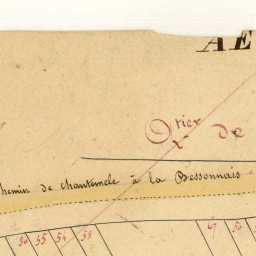 AE
Ortier de
chemin de chantemele à la Bessonnais
56 55 54 53 47 52